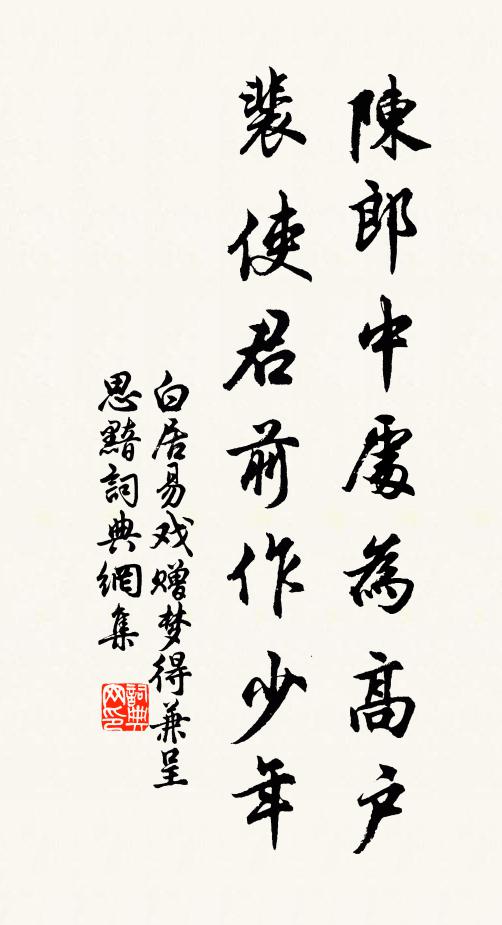 陳郎中處為高戶
裴使君前作少年
白居易戏赠梦得兼呈
思黯詞典網集
詞典
网印